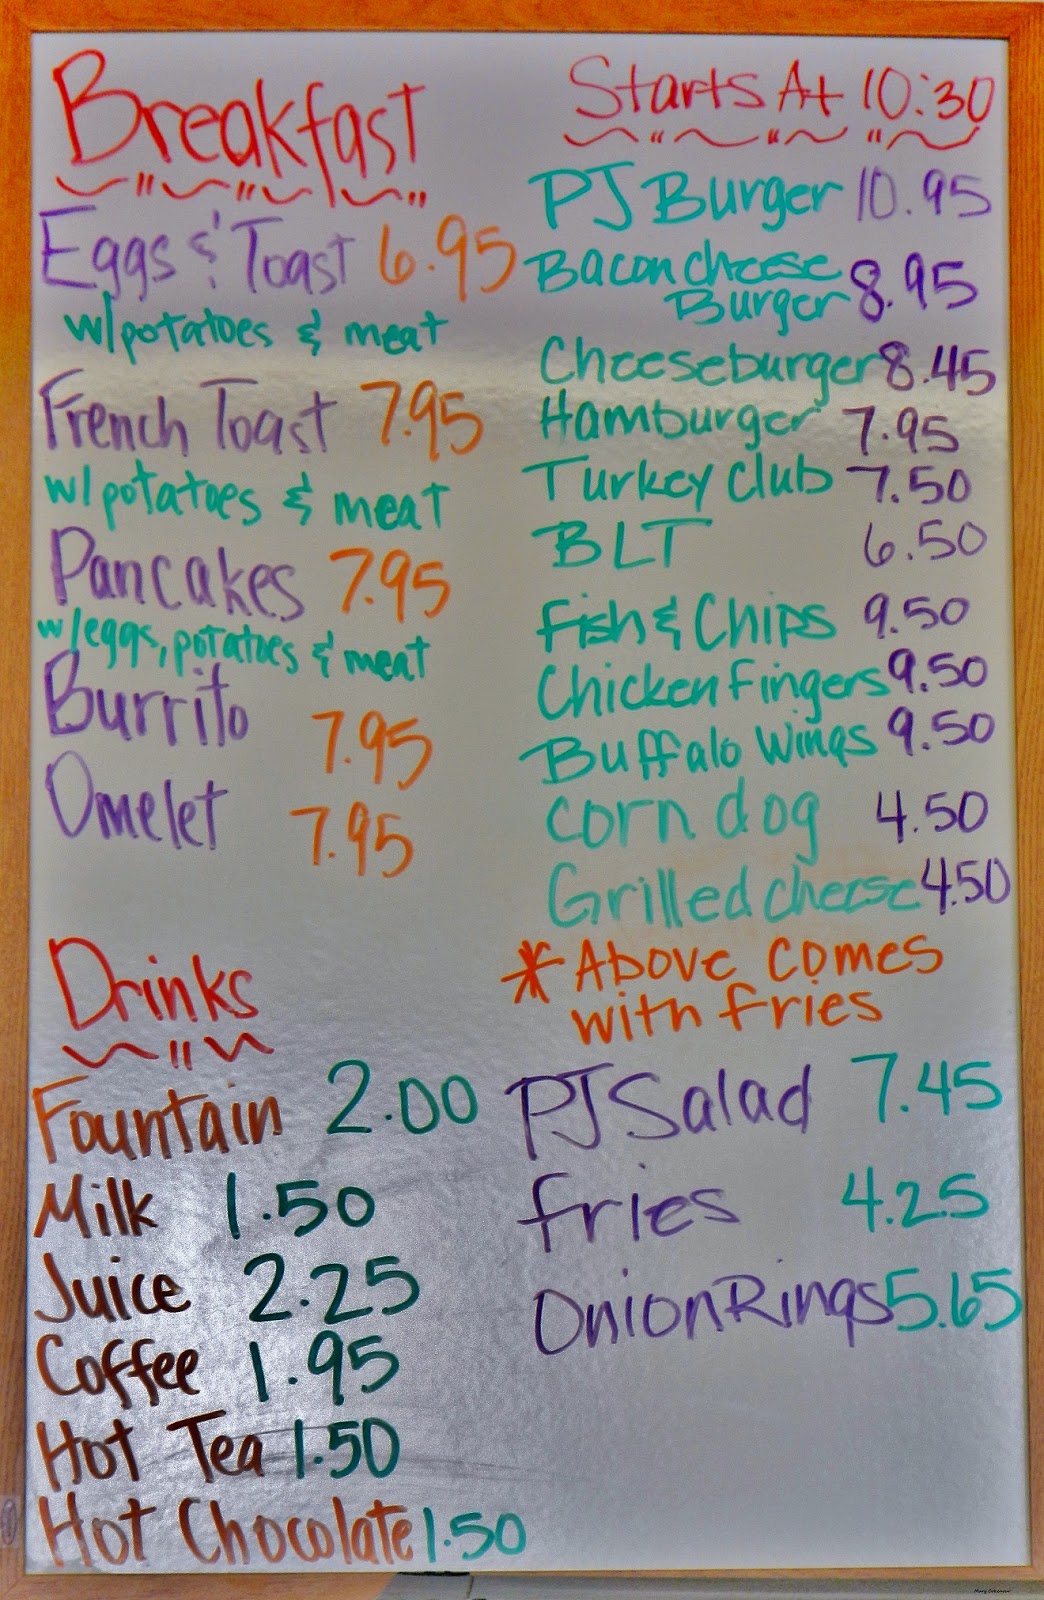 Breakfast
Eggs & Toast 6.95
w/potatoes & meat
French Toast 7.95
w/potatoes & meat
Pancakes 7.95
w/eggs, potatoes & meat
Burrito 7.95
Omelet 7.95
Drinks
Fountain 2.00
Milk 1.50
Juice 2.25
Coffee 1.95
Hot Tea 1.50
Hot Chocolate 1.50
Starts At 10:30
PJ Burger 10.95
Bacon cheese
Burger 8.95
Cheeseburger 8.45
Hamburger 7.95
Turkey Club 7.50
BLT 6.50
Fish & Chips 9.50
Chicken Fingers 9.50
Buffalo Wings 9.50
corn dog 4.50
Grilled cheese 4.50
* Above comes
with fries
PJ Salad 7.45
fries 4.25
Onion Rings 5.65